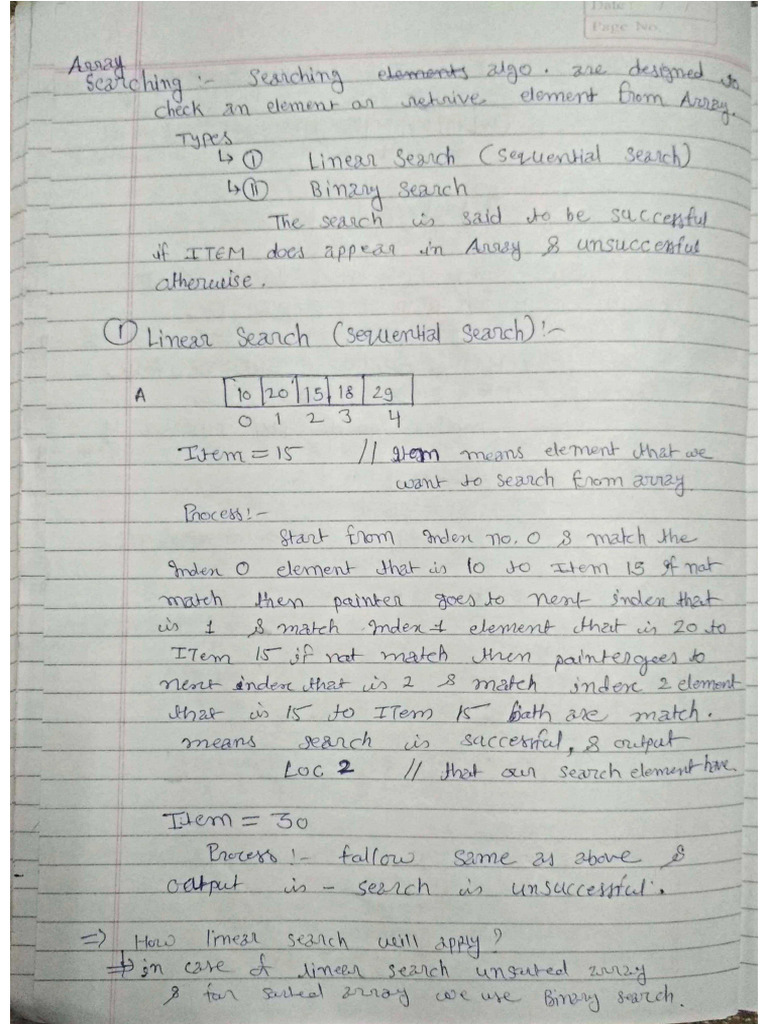 Date : / /
Page No.
Array
Searching :- Searching elements algo. are designed to
check an element or retrive element from Array.
Types
↳ (I) Linear Search (Sequential Search)
↳ (II) Binary Search
The search is said to be successful
if ITEM does appear in Array & unsuccessful
otherwise.
(I) Linear Search (Sequential Search) :-
A 10 20 15 18 29
0 1 2 3 4
Item = 15 // Item means element that we
want to search from array
Process :-
Start from index no. 0 & match the
index 0 element that is 10 to Item 15 if not
match then pointer goes to next index that
is 1 & match index 1 element that is 20 to
ITem 15 if not match then pointer goes to
next index that is 2 & match index 2 element
that is 15 to ITem 15 both are match.
means search is saccessful, & output
Loc 2 // that our search element have.
Item = 30
Process :- follow same as above &
output is - search is unsuccessful.
⇒ How linear search will apply?
⇒ in case of linear search unsorted array
& for sorted array we use Binary search.